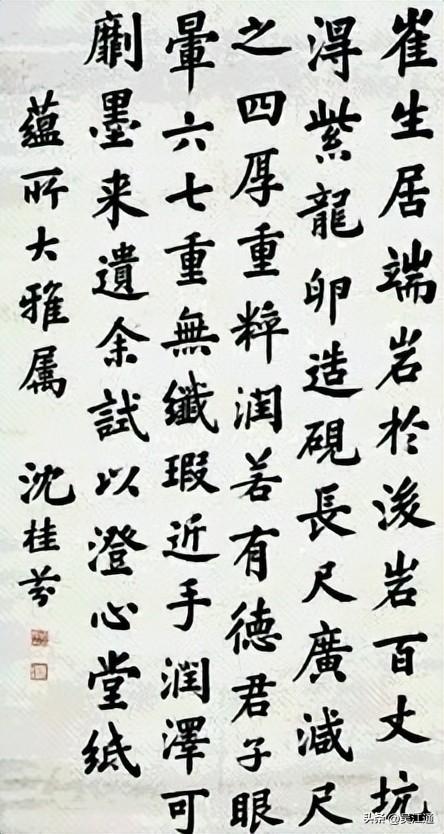 崔生居端岩於浚岩百丈坑
淂紫龍卵造硯長尺廣減尺
之四厚重粹润若有德君子眼
暈六七重無纖瑕近手潤澤可
劘墨来遺余試以澄心堂紙
蘊所大雅属 沈桂芬
头条@吴江通